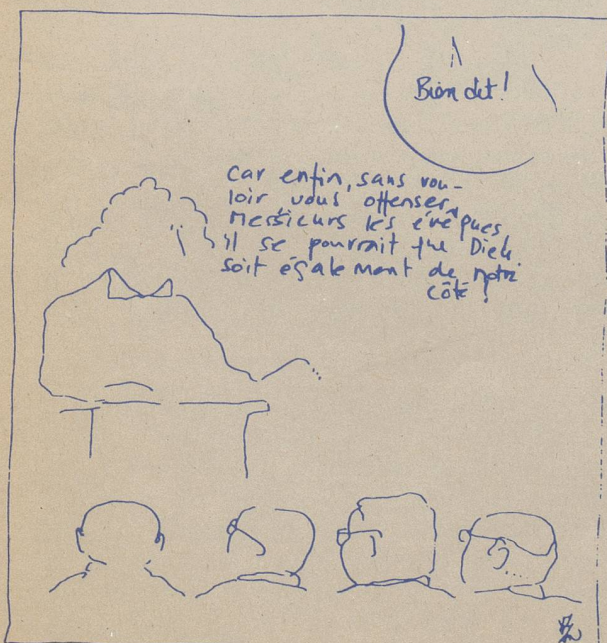 Bien dit!
Car enfin, sans vou-
loir vous offenser,
Messieurs les évêques,
il se pourrait que Dieu
soit également de notre
côté!